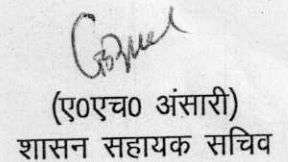 (ए०एच० अंसारी)
शासन सहायक सचिव